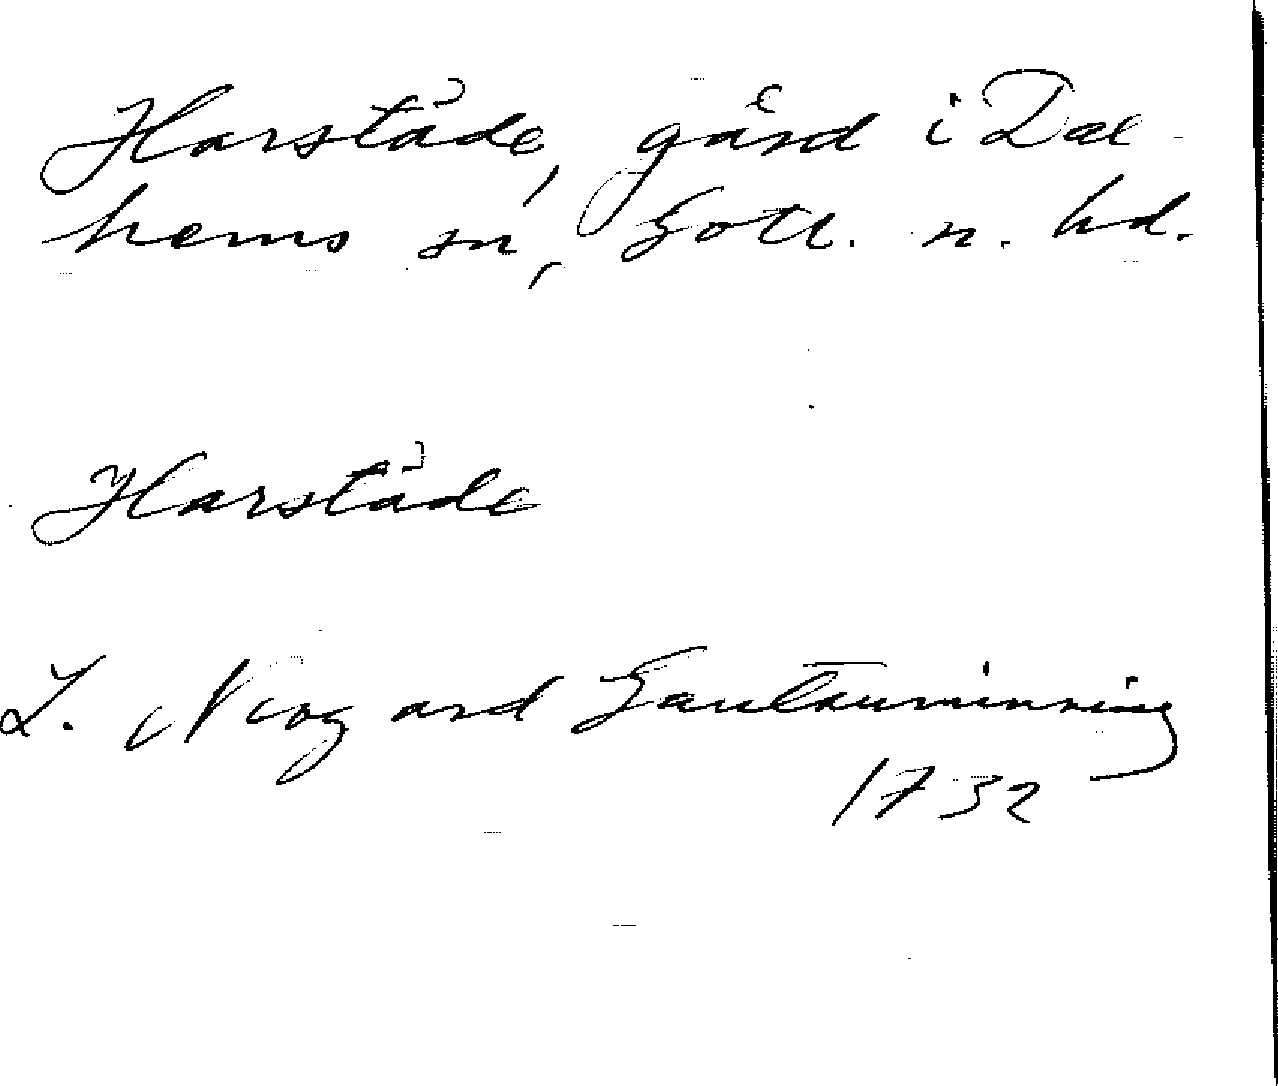 Harstäde, gård i Dal-
hems sn, Gotl. n. hd.
Harstäde
L. Niog ard Gautauminning
1732